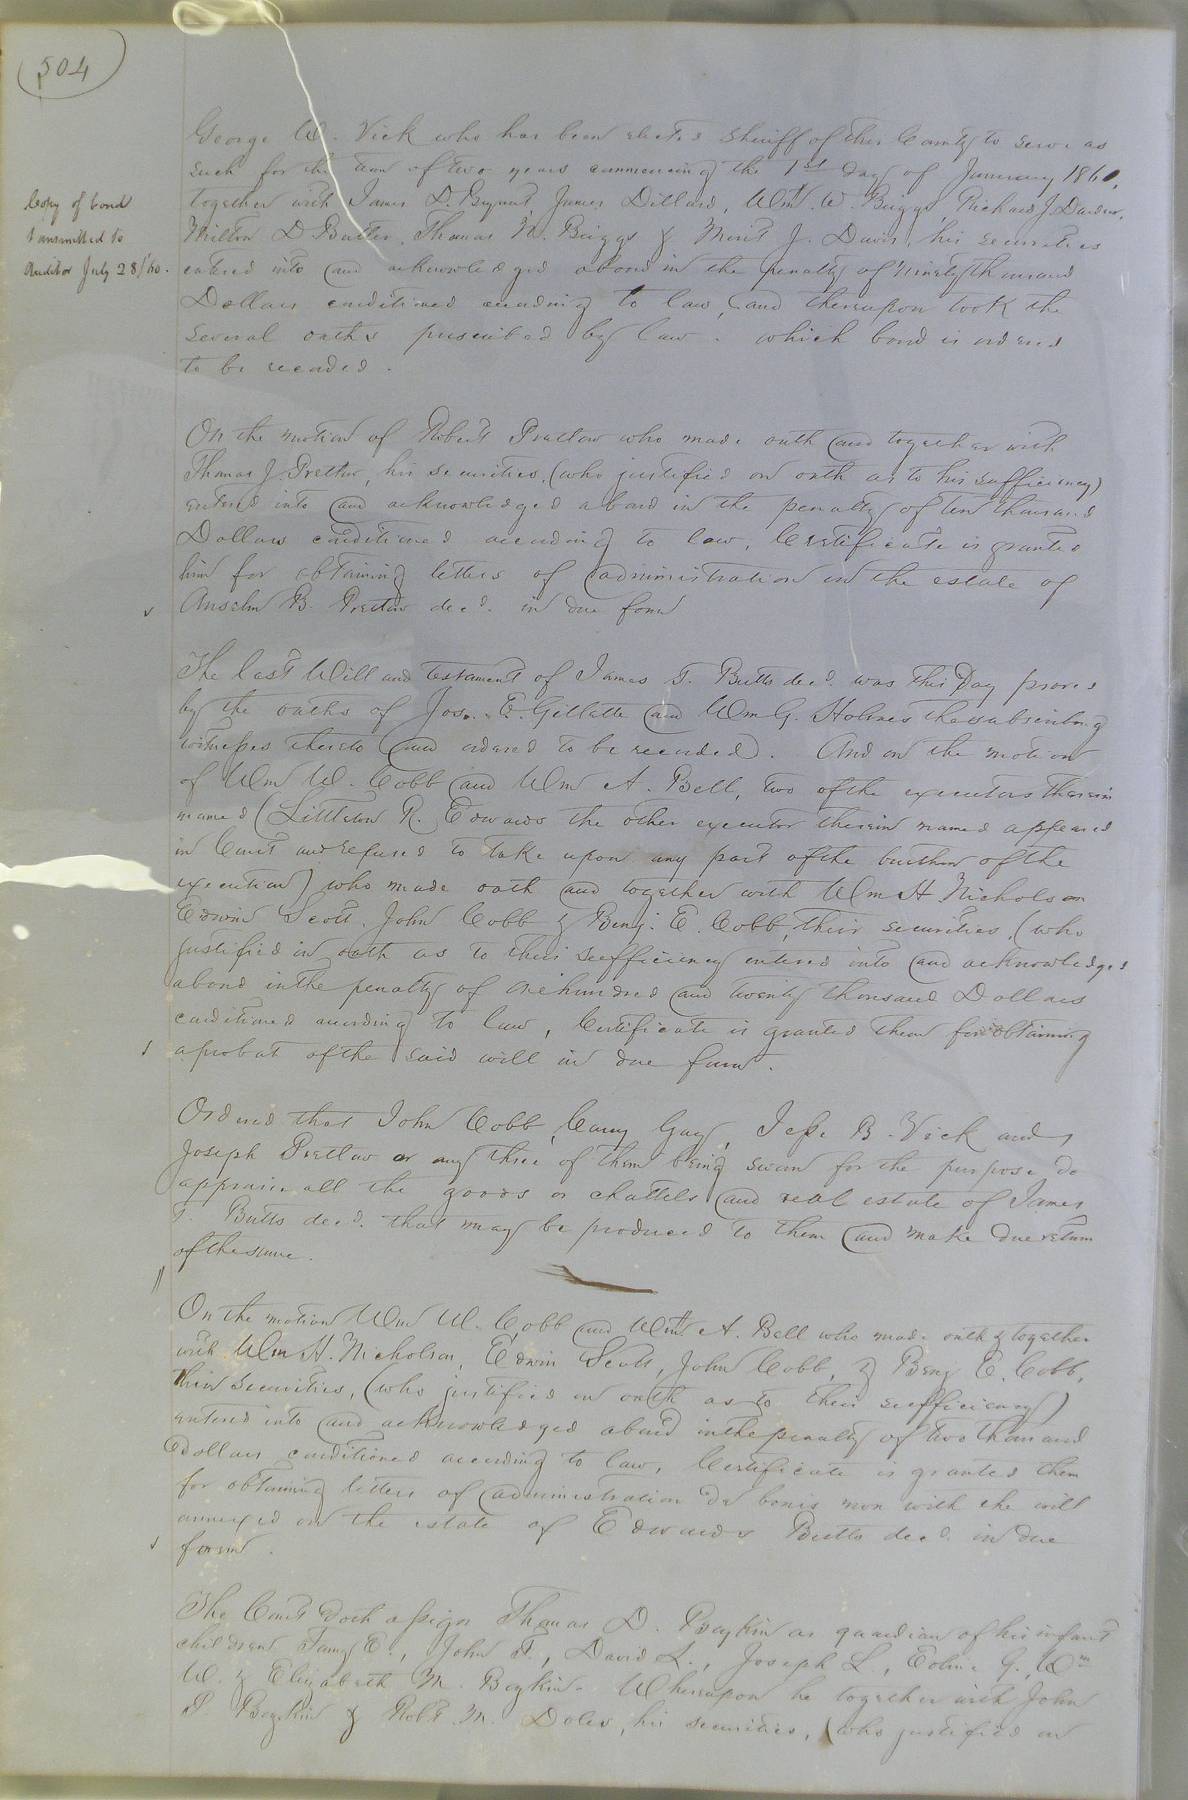 504
George W. Vick who has been elected Sheriff of this County to serve as
such for the term of two years commencing the 1st day of January 1861,
Copy of bond
transmitted to
Auditor July 28/60.
together with James D. Bryant James Dillard, Wm. W. Briggs, Richard J. Darden,
Milton D Butler, Thomas N. Briggs & Merit J. Davis, his securities
entered into and acknowledged a bond in the penalty of Ninety thousand
Dollars conditioned according to law, and thereupon took the
several oaths prescribed by law. which bond is ordered
to be recorded.
On the motion of Robert Pretlow who made oath and together with
Thomas J. Pretlow, his securities, (who justified on oath as to his sufficiency)
entered into and acknowledged a bond in the penalty of ten thousand
Dollars conditioned according to law, Certificate is granted
him for obtaining letters of administration on the estate of
Anselm B. Pretlow decd. in due form
The last Will and testament of James T. Butts decd. was this Day proved
by the oaths of Jos. E. Gillette and Wm G. Holmes the subscribing
witnesses thereto and ordered to be recorded. And on the motion
of Wm W. Cobb and Wm A. Bell, two of the executors therein
named (Littleton R. Edwards the other executor therein named appeared
in Court and refused to take upon any part of the burthen of the
execution) who made oath and together with Wm H Nicholson
Edwin Scott, John Cobb & Benj. E. Cobb, their securities, (who
justified on oath as to their sufficiency entered into and acknowledged
a bond in the penalty of one hundred and twenty thousand Dollars
conditioned according to law, Certificate is granted them for obtaining
a probat of the said will in due form.
Ordered that John Cobb, Carey Gay, Jesse B. Vick and
Joseph Pretlow or any three of them being sworn for the purpose do
appraise all the goods or chattels and real estate of James
T. Butts decd. that may be produced to them and make due return
of the same.
On the motion Wm W. Cobb and Wm A. Bell who made oath & together
with Wm H. Nicholson, Edwin Scott, John Cobb, & Benj E. Cobb,
their securities, (who justified on oath as to their sufficiency)
entered into and acknowledged a bond in the penalty of two thousand
Dollars conditioned according to law, Certificate is granted them
for obtaining letters of administration de bonis non with the will
annexed on the estate of Edwards Butts decd. in due
form.
The Court doth assign Thomas D. Boykin as guardian of his infant
children E., John T., David L., Joseph L., G., Wm
W. & Elizabeth M. Boykin. Whereupon he together with John
S Boykin & Robt. M. Doles, his securities, (who justified on